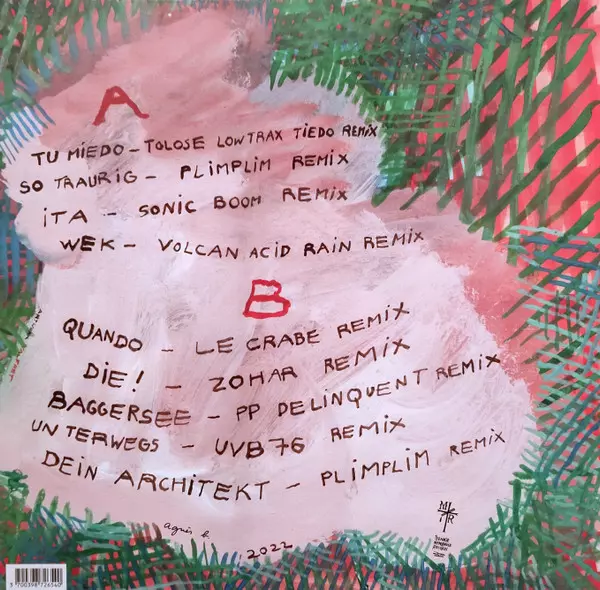 A
TU MIEDO – TOLOSE LOWTRAX TIEDO REMIX
SO TRAURIG – PLIMPLIM REMIX
iTA – SONIC BOOM REMIX
WEK – VOLCAN ACID RAIN REMIX
B
QUANDO – LE CRABE REMIX
DIE! – ZOHAR REMIX
BAGGERSEE – PP DELINQUENT REMIX
UNTERWEGS – UVB76 REMIX
DEIN ARCHITEKT – PLIMPLIM REMIX
agnès b.
2022
3 700398 726540